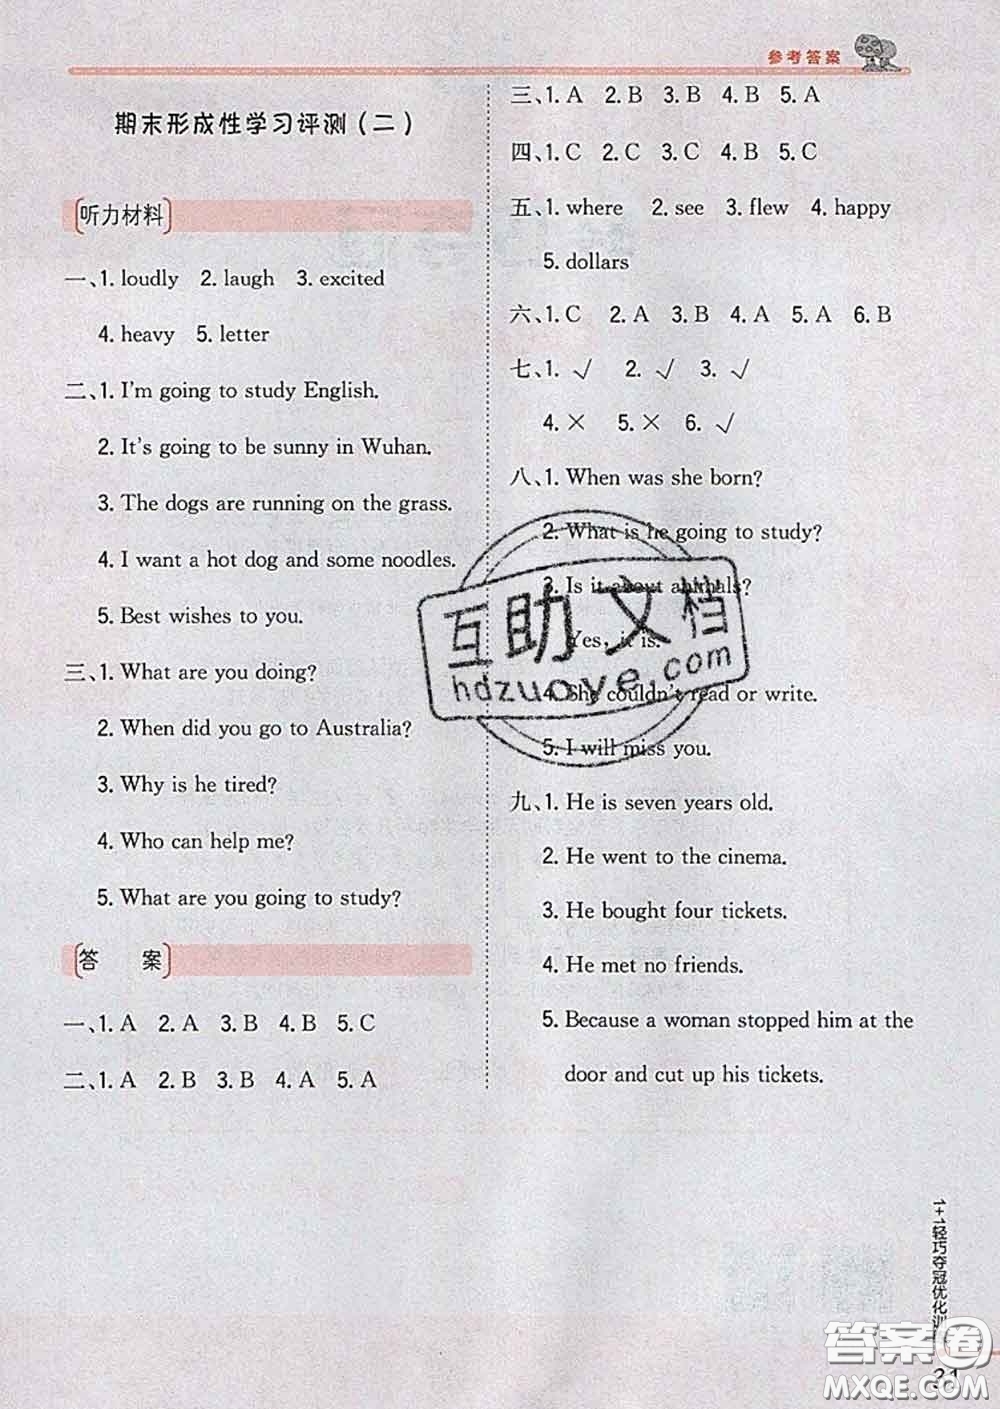 参考答案
期末形成性学习评测(二)
听力材料
一、1. loudly 2. laugh 3. excited
4. heavy 5. letter
二、1. I'm going to study English.
2. It's going to be sunny in Wuhan.
3. The dogs are running on the grass.
4. I want a hot dog and some noodles.
5. Best wishes to you.
三、1. What are you doing?
2. When did you go to Australia?
3. Why is he tired?
4. Who can help me?
5. What are you going to study?
答 案
一、1. A 2. A 3. B 4. B 5. C
二、1. A 2. B 3. B 4. A 5. A
三、1. A 2. B 3. B 4. B 5. A
四、1. C 2. C 3. C 4. B 5. C
五、1. where 2. see 3. flew 4. happy
5. dollars
六、1. C 2. A 3. B 4. A 5. A 6. B
七、1. √ 2. √ 3. √
4. × 5. × 6. √
八、1. When was she born?
2. What is he going to study?
3. Is it about animals?
Yes, it is.
4. She couldn't read or write.
5. I will miss you.
九、1. He is seven years old.
2. He went to the cinema.
3. He bought four tickets.
4. He met no friends.
5. Because a woman stopped him at the
door and cut up his tickets.
互助文档
hdzuoye.com
1+1轻巧夺冠优化训
答案圈
MXQE.COM